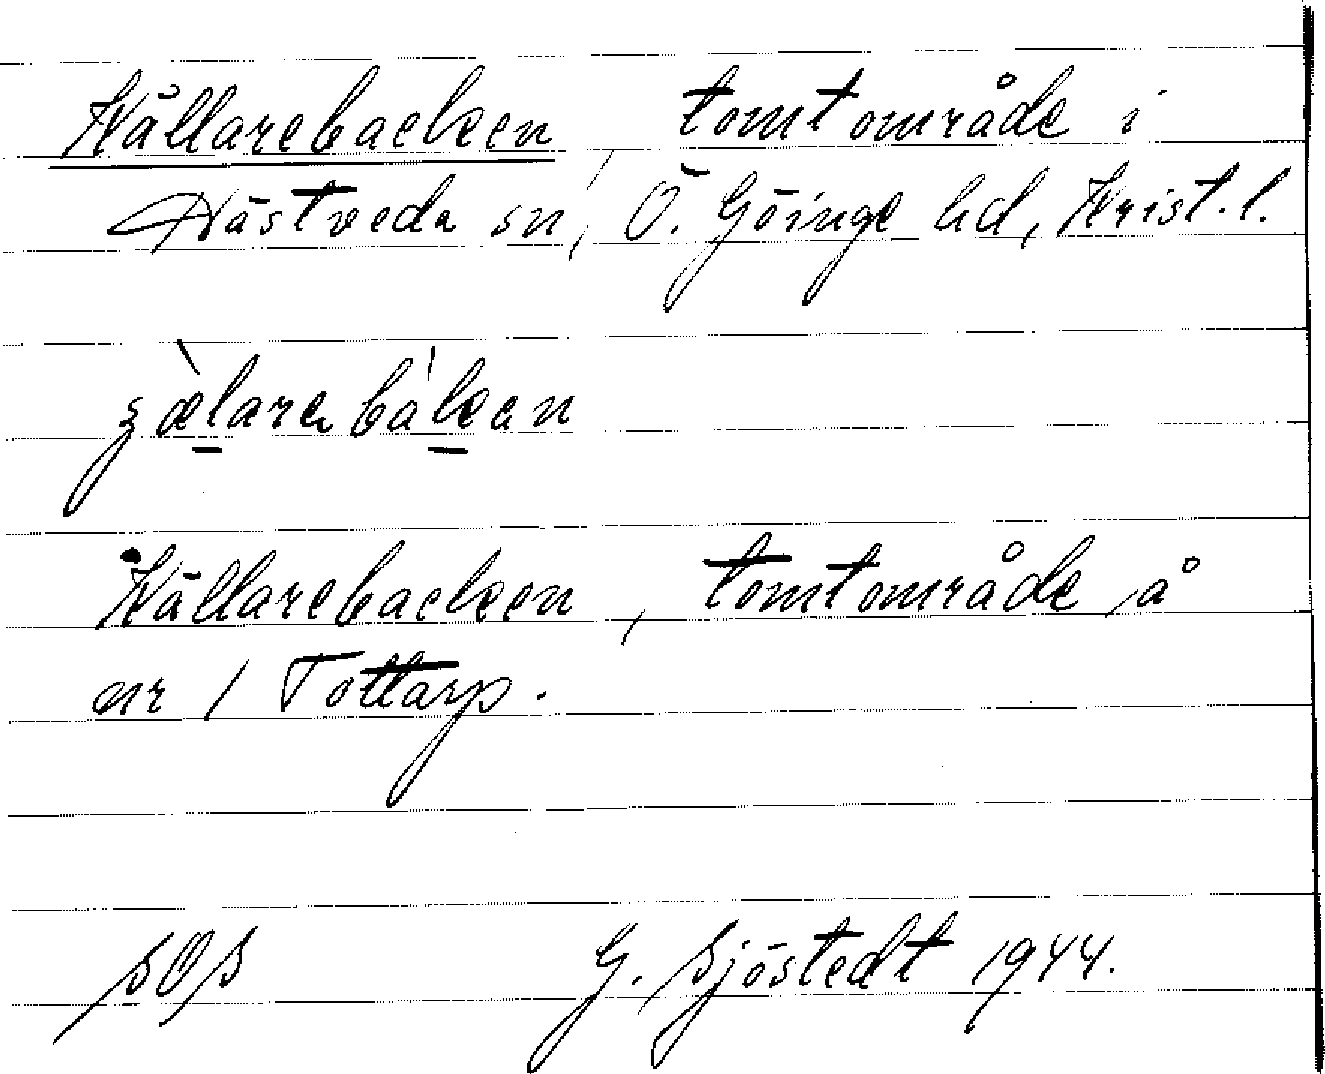 Källarebacken tomtområde i
Hästveda sn, Ö. Göinge hd, Krist. l.
Källarebacken, tomtområde å
nr 1 Tottarp.
SOS G. Sjöstedt 1944.